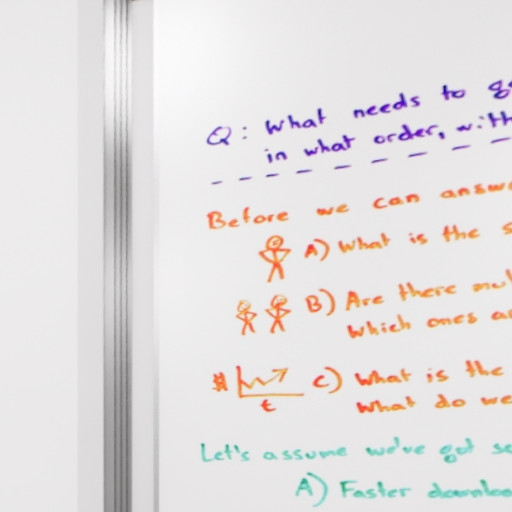 Q: What needs to
in what order,
Before we can
A) What is the
B) Are there
Which ones
$ t C) What is the
What do we
Let's assume we've got
A) Faster